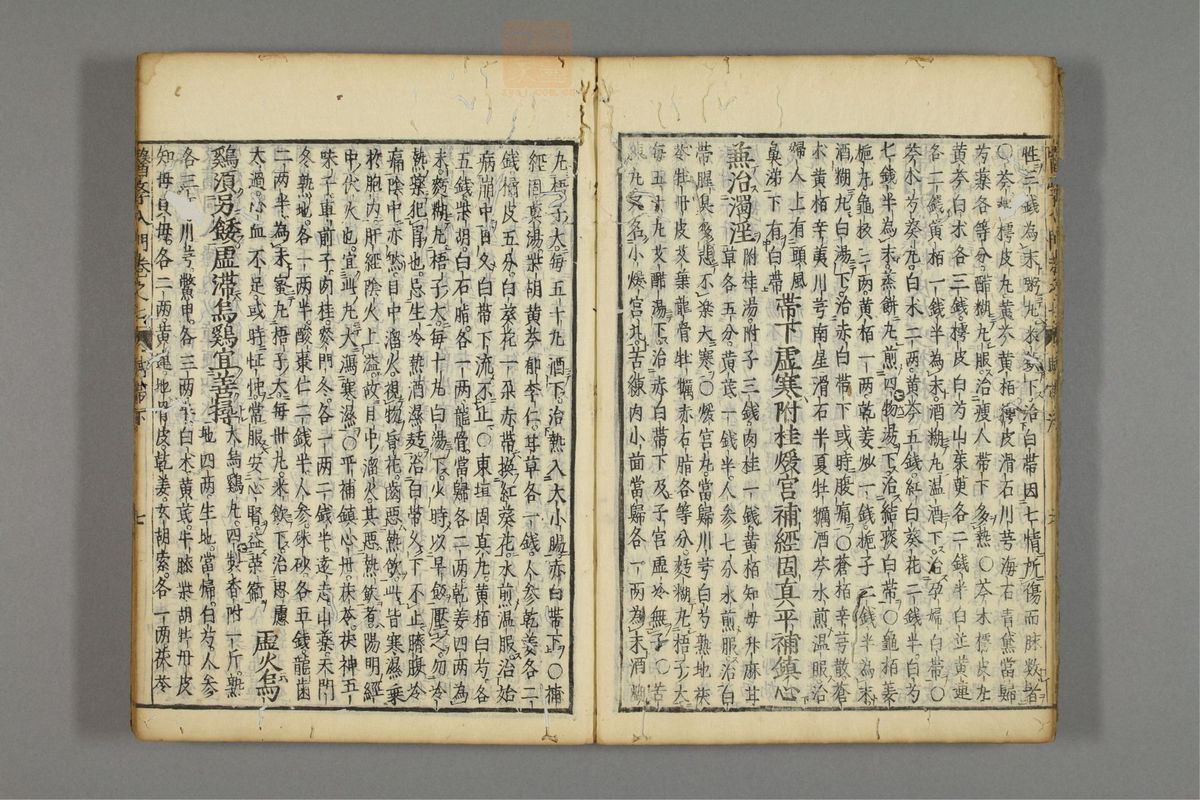 牲三錢為末粥丸米飲下治白帶因七情所傷而脉数者
○芩樗皮丸黃芩黃栢樗皮滑石川芎海石青黛當歸
芍藥各等分醋糊丸服治瘦人帶下多熱○芩朮樗皮丸
黃芩白朮各三錢樗皮白芍山茱萸各二錢半白芷黃連
各二錢黃栢一錢半為末酒糊丸温酒下治孕婦白帶○
芩朮芍葵丸白朮二两黃芩五錢紅白葵花二錢半白芍
七錢半為末蒸餅丸煎四物湯下治結痰白帶○龜栢姜
梔丸龜板二两黃栢一两乾姜炒一錢梔子二錢半為末
酒糊丸白湯下治赤白帶下或時腹痛○蒼栢辛芎散蒼
朮黃栢辛夷川芎南星滑石半夏牡蠣酒芩水煎温服治
婦人上有頭風
鼻涕下有白帶
帶下虛寒附桂煖宮補經固真平補鎮心
兼治濁淫
附桂湯附子三錢肉桂一錢黃栢知母升麻甘
草各五分黃芪一錢半人參七分水煎服治白
帶腥臭多悲不樂大寒○煖宮丸當歸川芎白芍熟地茯
苓牡丹皮艾葉龍骨牡蠣赤石脂各等分麪糊丸梧子大
每五十丸艾醋湯下治赤白帶下及子宮虛冷無子○苦
練丸又名小煖宮丸苦練肉小茴當歸各一两為末酒糊
丸梧子大每五十丸酒下治熱入大小腸赤白帶下○補
經固真湯柴胡黃芩郁李仁甘草各一錢人參乾姜各二
錢橘皮五分白葵花一朶赤帶換紅葵花水煎温服治始
病崩中日久白帶下流不止○東垣固真丸黃栢白芍各
五錢柴胡白石脂各一两龍骨當歸各二两乾姜四两為
末麪糊丸梧子大每十丸白湯下少時以早飯壓之勿令
熱藥犯胃也忌生冷熱酒濕麪治白帶久下不止臍腹冷
痛陰中亦然目中溜火視物昏花齒惡熱飲此皆寒濕乗
於胞内肝經陰火上溢故目中溜火其惡熱飲者陽明經
中伏火也宜此丸大瀉寒濕○平補鎮心丹茯苓茯神五
味子車前子肉桂麥門冬各一两二錢半遠志山藥天門
冬熟地各一两半酸棗仁二錢半人參硃砂各五錢龍齒
二两半為末蜜丸梧子大每卅丸米飲下治思慮
太過心血不足或時怔忡常服安心腎益榮衛
虛火烏
鷄須另錢虛滯烏鷄宜善撙
大烏鷄丸四製香附一斤熟
地四两生地當歸白芍人參
各三两川芎鱉甲各三两半白朮黃芪牛膝柴胡牡丹皮
知母貝母各二两黃連地骨皮乾姜玄胡索各一两茯苓
醫學入門卷之七
帶下
七